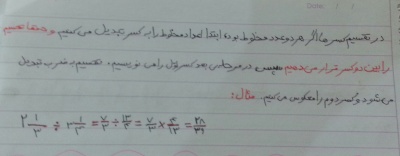 در تقسیم کسرها اگر هر دو عدد مخلوط بود ابتدا اعداد مخلوط را به کسر تبدیل می کنیم و خط تقسیم
را بین دو کسر قرار می دهیم سپس در مرحله ی بعد کسر اول را می نویسیم، تقسیم به ضرب تبدیل
می شود و کسر دوم را معکوس می کنیم. مثال:
۲ ۱/۳ ÷ ۳ ۱/۴ = ۷/۳ ÷ ۱۳/۴ = ۷/۳ × ۴/۱۳ = ۲۸/۳۹